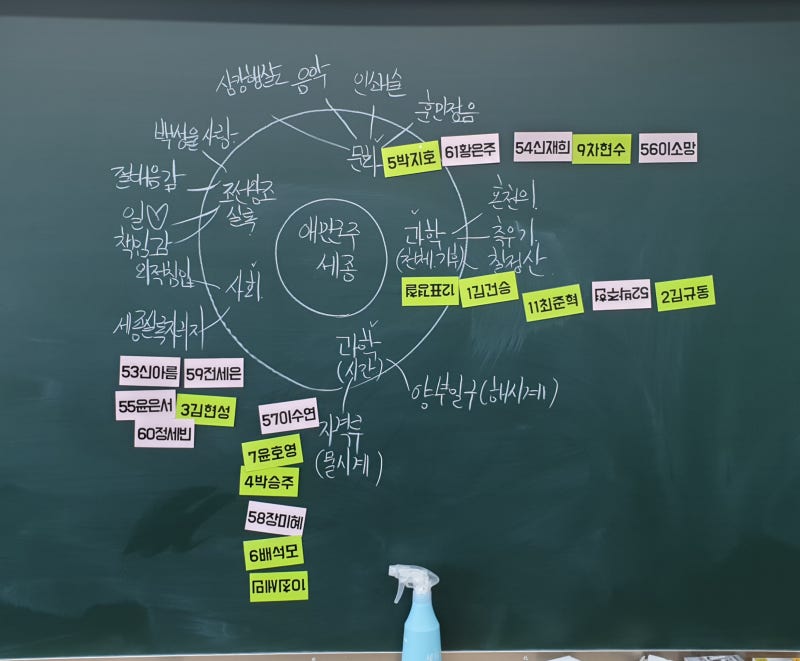 삼강행실도
음악
인쇄술
훈민정음
백성을 사랑
문화
5박지호
61황은주
54신재희
9차현수
56이소망
절대음감
조선왕조
실록
일♡
책임감
외적침입
사회
세종실록지리지
애민군주
세종
과학
(천체, 기후)
혼천의
측우기
칠정산
12표경철
1김건승
11최준혁
52박주현
2김규동
과학
(시간)
양부일구(해시계)
자격루
(물시계)
53신아름
59전세은
55윤은서
3김현성
60정세빈
57이수연
7윤호영
4박승주
58장미혜
6배석모
10최세민